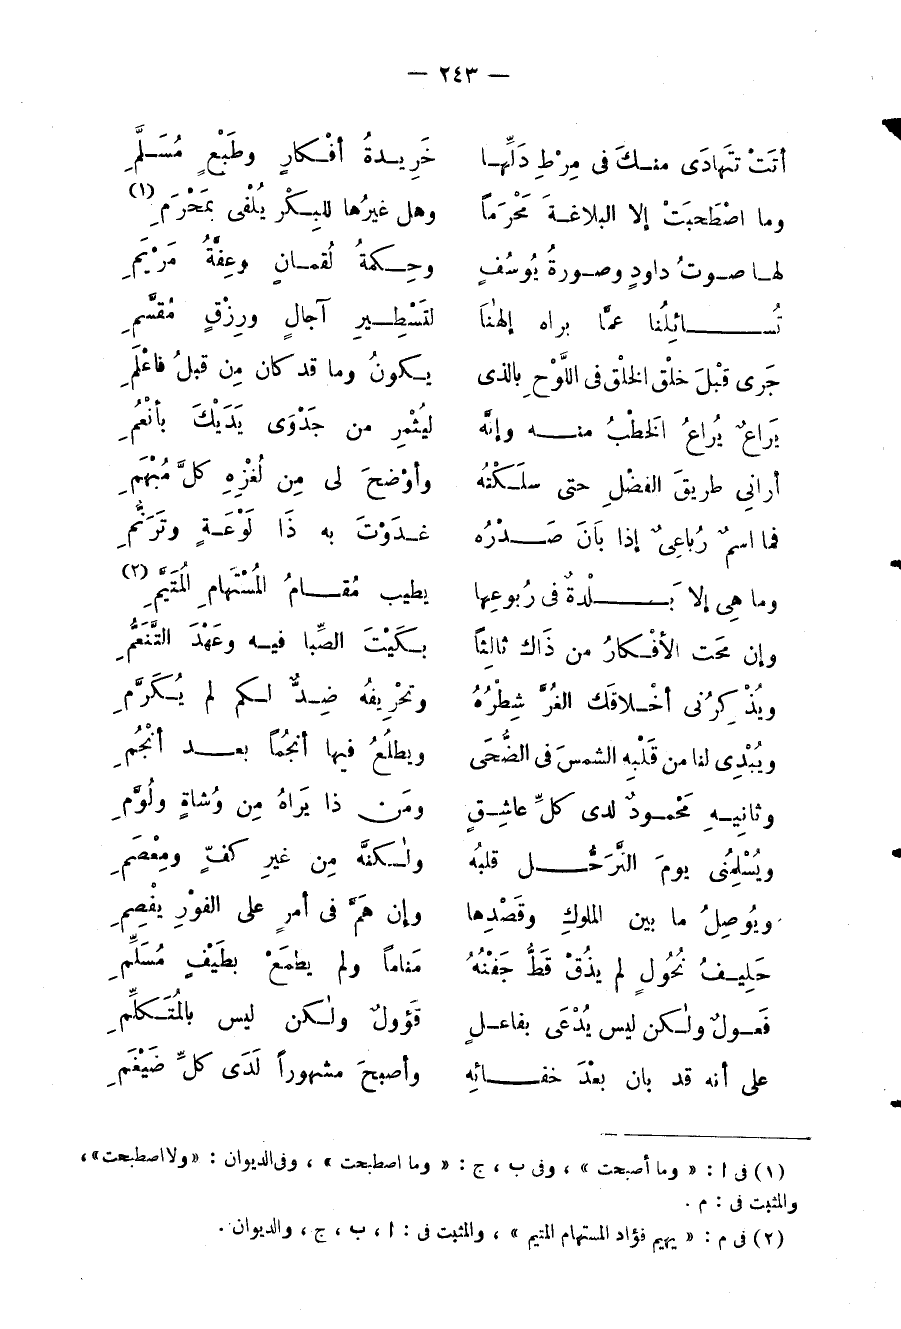 — ٢٤٣ —
أتَتْ تتَهادَى منك فى مِرْطِ دَلِّها خَرِيدةُ أفْكارٍ وطَبْعٍ مُسَلَّمِ
وما اصْطَحبَتْ إلا البلاغةَ مَحْرَماً وهل غيرُها للبِكْر يُلْفَى بمَحْرَمِ (١)
لها صوتُ داودٍ وصورةُ يُوسُفٍ وحِكمةُ لُقمانٍ وعِفَّةُ مَرْيَمِ
تُسائِلُنا عمَّا براه إلهنَا لتَسْطِيرِ آجالٍ ورِزْقٍ مُقسَّمِ
جَرى قبْلَ خلْقِ الخلْقِ فى اللَّوْحِ بالذى يكونُ وما قد كان مِن قبلُ فاعْلَمِ
يَراعٌ يُراعُ الخطْبُ منه وإنَّه ليُثْمِر من جَدْوَى يَدَيْكَ بأنْعُمِ
أرانِي طريقَ الفضْلِ حتى سلَكْتُه وأوْضحَ لى مِن لُغزِهِ كلَّ مُبْهَمِ
فما اسمٌ رُباعِىٌّ إذا بَانَ صَدْرُه غدَوْتَ به ذَا لَوْعَةٍ وتَرَنُّمِ
وما هى إلا بَلْدةٌ فى رُبوعِها يطيب مُقامُ المُسْتَهامِ المُتَيَّمِ (٢)
وإن مَحَت الأفْكارُ من ذَاك ثالثاً بكَيْتَ الصِّبا فيه وعَهْدَ التَّنَعُّمِ
ويُذْكِرُنى أخْلاقَك الغُرَّ شِطْرُهُ وتحْرِيفُه ضِدٌّ لكم لم يُكَرَّمِ
ويُبْدِى لنا من قَلْبِه الشمسَ فى الضُّحَى ويطلُعُ فيها أنجُماً بعد أنْجُمِ
وثانِيهِ مَحْمودٌ لدى كلِّ عاشِقٍ ومَن ذا يَراهُ مِن وُشاةٍ ولُوَّمِ
ويُسْلِمُنى يومَ التَّرَحُّلِ قلبُه ولٰكنَّه مِن غيرِ كفٍّ ومِعْصَمِ
ويُوصِلُ ما بين الملوكِ وقَصْدِها وإن هَمَّ فى أمرٍ على الفوْرِ يفْصِمِ
حَلِيفُ نُحُولٍ لم يذُقْ قطُّ جَفْنُهُ مَناماً ولم يطمَعْ بطَيْفٍ مُسَلِّمِ
فَعولٌ ولٰكن ليس يُدْعَى بفاعلٍ قَؤولٌ ولٰكن ليس بالمُتَكلِّمِ
على أنه قد بان بعْدَ خفائِه وأصبحَ مشهوراً لَدَى كلِّ ضَيْغَمِ
(١) فى ا : « وما أصبحت » ، وفى ب ، ج : « وما اصطبحت » ، وفى الديوان : « ولا اصطبحت » ،
والمثبت فى : م .
(٢) فى م : « يهيم فؤاد المستهام المتيم » ، والمثبت فى : ا ، ب ، ج ، والديوان .